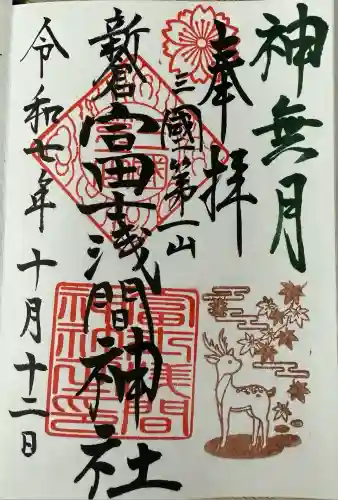 神無月
奉拝
三國第一山
新倉富士浅間神社
令和七年十月十二日
冨士浅間神社之印